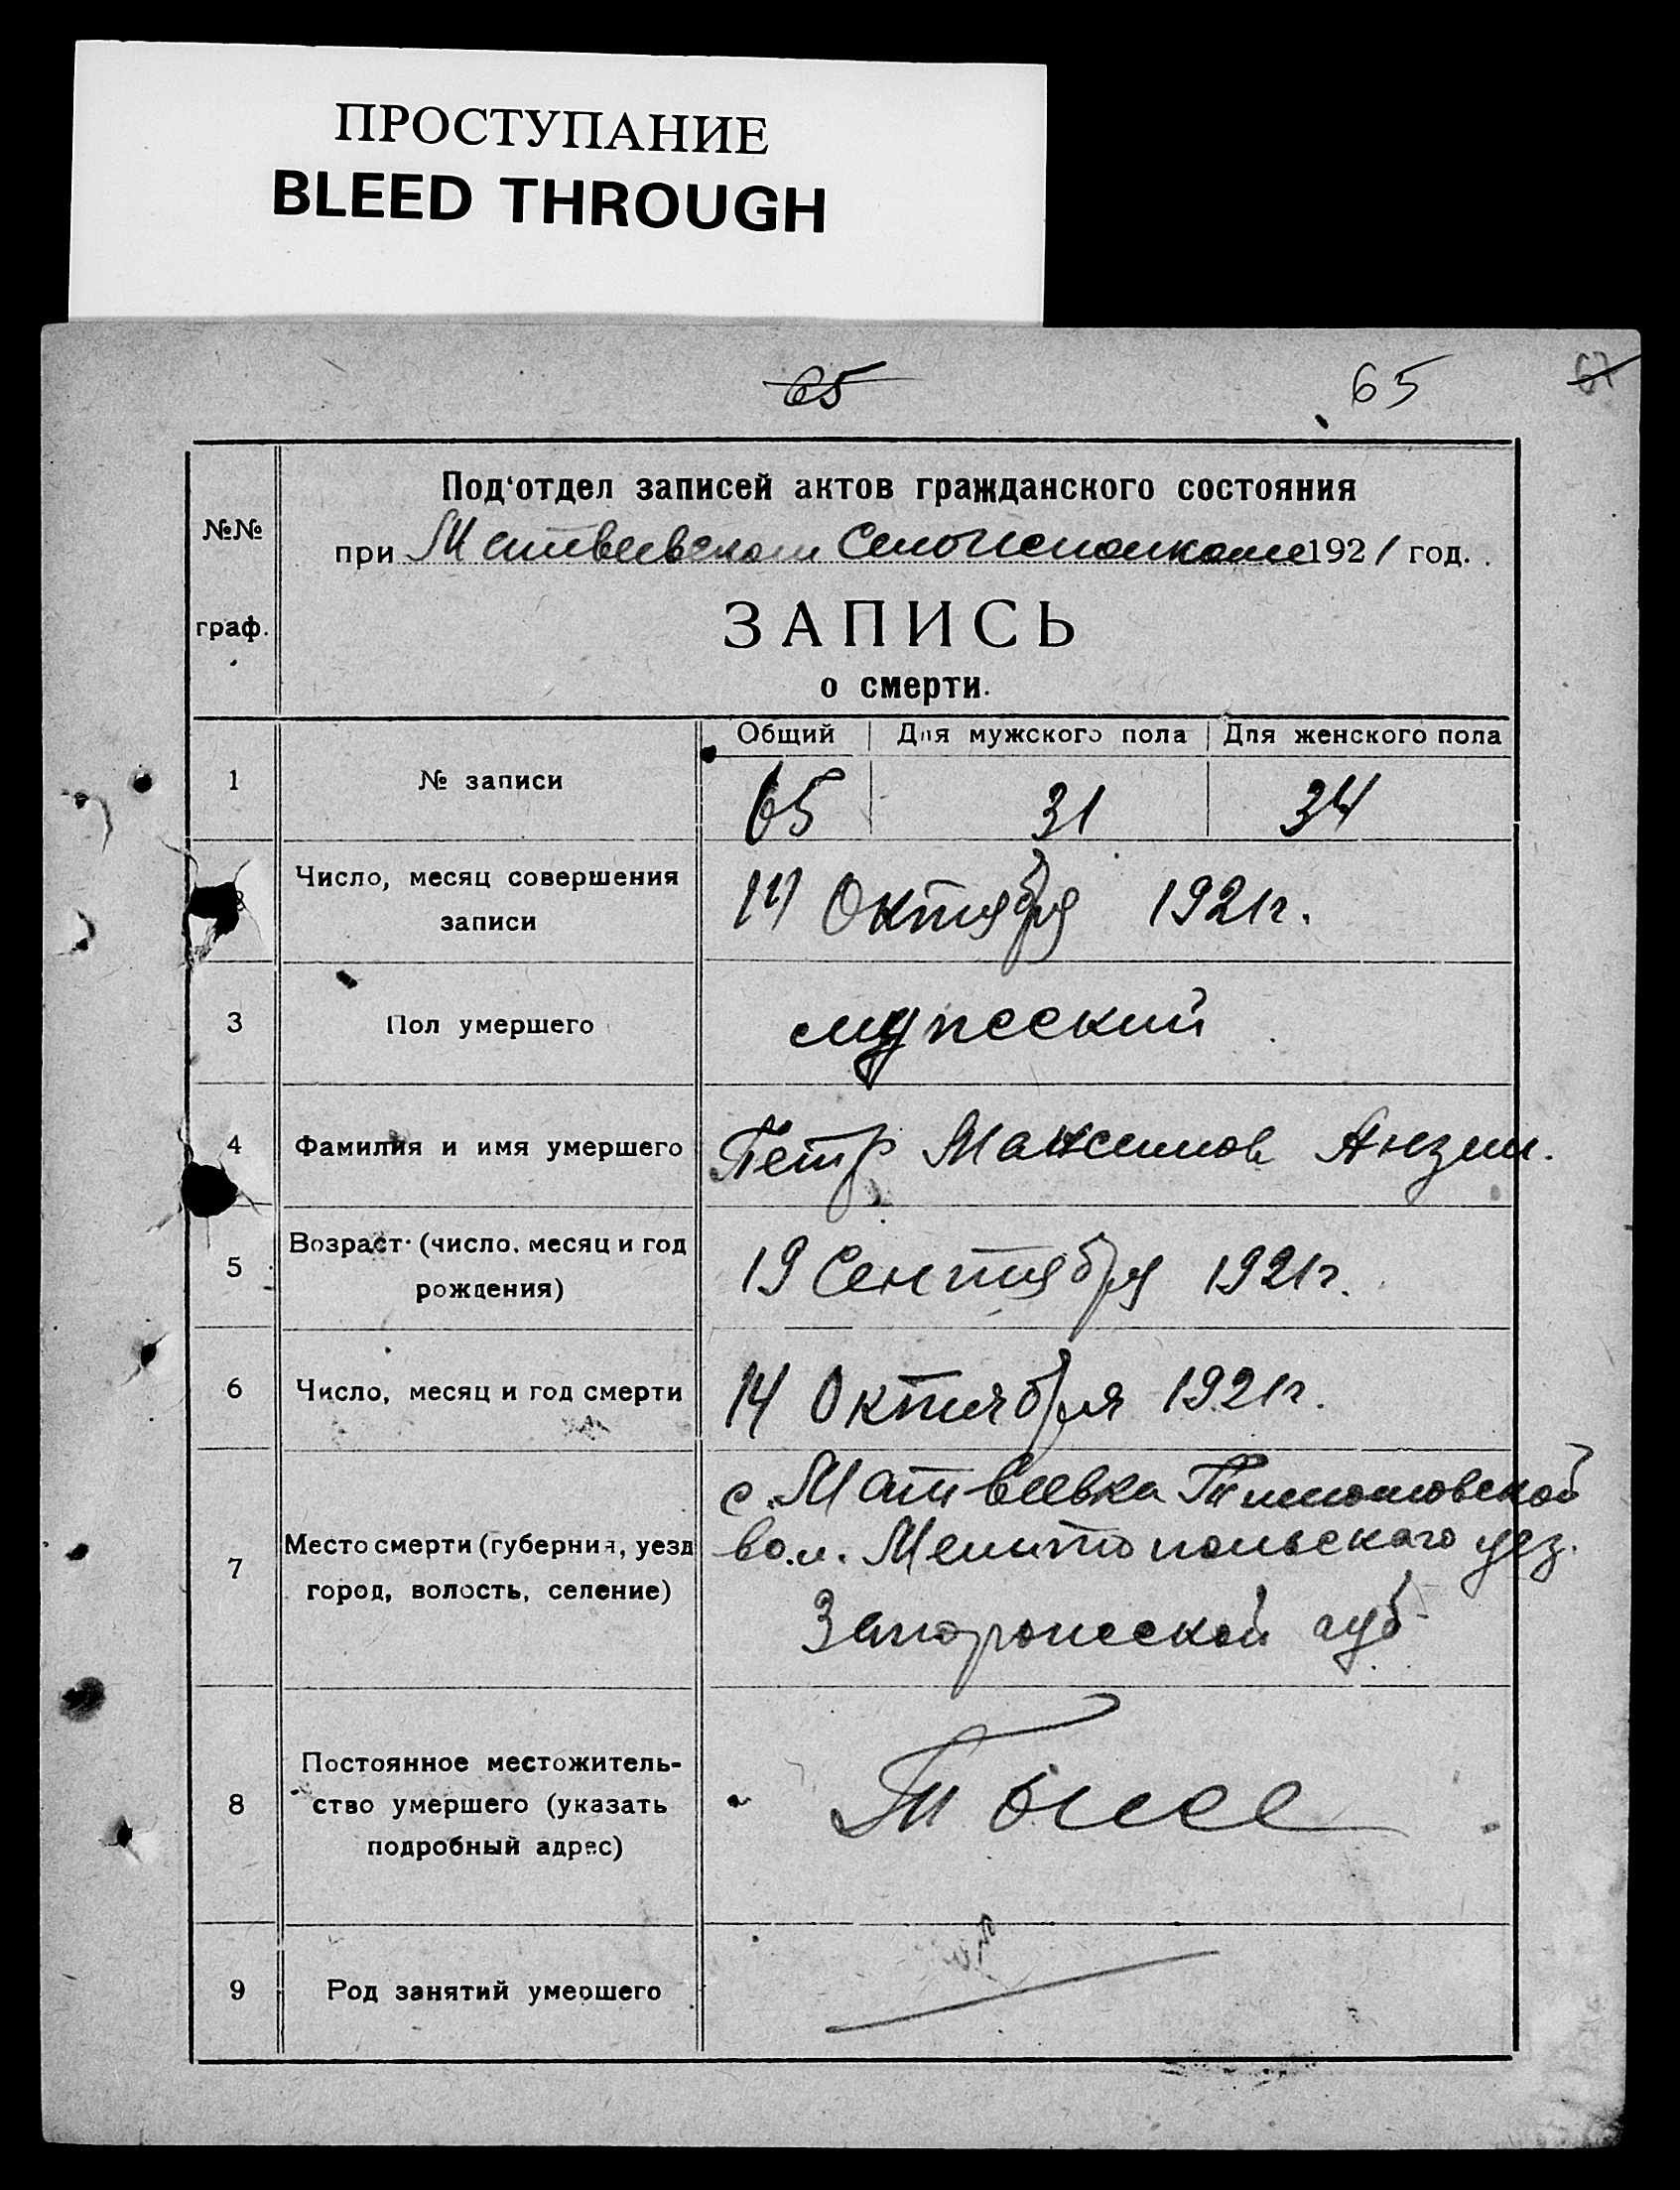 ПРОСТУПАНИЕ
BLEED THROUGH
65 65 67
№№ граф.
Под‘отдел записей актов гражданского состояния
при Матвеевском Сельисполкоме 1921 год.
ЗАПИСЬ
о смерти.
Общий Для мужского пола Для женского пола
1 № записи 65 31 34
Число, месяц совершения записи 14 Октября 1921г.
3 Пол умершего мужеский
4 Фамилия и имя умершего Петр Максимов Анзин.
5 Возраст (число, месяц и год рождения) 19 Сентября 1921г.
6 Число, месяц и год смерти 14 Октября 1921г.
7 Место смерти (губерния, уезд город, волость, селение) с. Матвеевка Тимошовской
вол. Мелитопольскаго уез.
Запорожской губ
8 Постоянное местожитель-
ство умершего (указать
подробный адрес) Тоже
9 Род занятий умершего